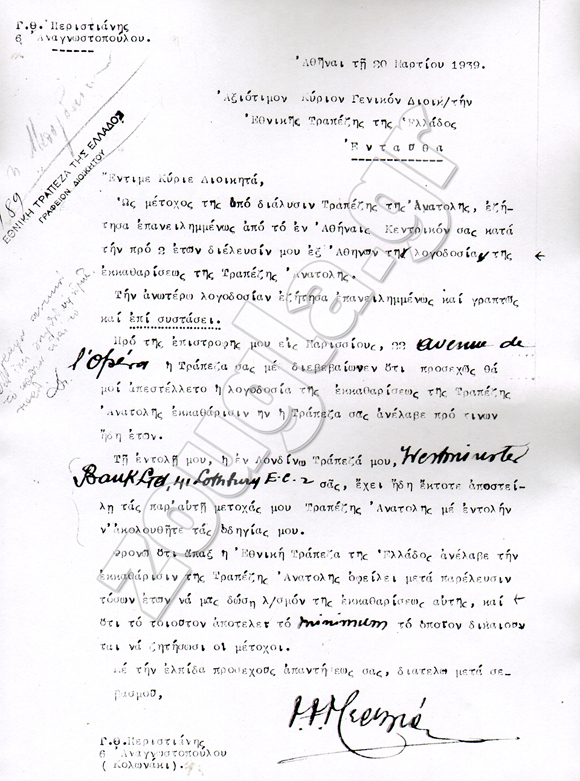 Γ.Θ. Περιστιάνης
6 Ἀναγνωστοπούλου.
Ἀθῆναι τῇ 20 Μαρτίου 1939.
Ἀξιότιμον Κύριον Γενικόν Διοικ/τήν
Ἐθνικῆς Τραπέζης τῆς Ἑλλάδος
Ἐνταῦθα
ΕΘΝΙΚΗ ΤΡΑΠΕΖΑ ΤΗΣ ΕΛΛΑΔΟΣ
ΓΡΑΦΕΙΟΝ ΔΙΟΙΚΗΤΟΥ
Ἔντιμε Κύριε Διοικητά,
Ὡς μέτοχος τῆς ὑπό διάλυσιν Τραπέζης τῆς Ἀνατολῆς, ἐζή-
τησα ἐπανειλημμένως ἀπό τό ἐν Ἀθήναις Κεντρικόν σας κατά
τήν πρό 2 ἐτῶν διέλευσίν μου ἐξ Ἀθηνῶν τήν λογοδοσίαν τῆς
ἐκκαθαρίσεως τῆς Τραπέζης Ἀνατολῆς.
Τήν ἀνωτέρω λογοδοσίαν ἐζήτησα ἐπανειλημμένως καί γραπτῶς
καί ἐπί συστάσει.
Πρό τῆς ἐπιστροφῆς μου εἰς Παρισσίους, 22 avenue de
l'opéra ἡ Τράπεζα σας μέ διεβεβαίωνεν ὅτι προσεχῶς θά
μοί ἀπεστέλλετο ἡ λογοδοσία τῆς ἐκκαθαρίσεως τῆς Τραπέζης
Ἀνατολῆς ἐκκαθάρισιν ἥν ἡ Τράπεζα σας ἀνέλαβε πρό τινων
ἤδη ἐτῶν.
Τῇ ἐντολῇ μου, ἡ ἐν Λονδίνω Τράπεζά μου, Westminster
Bank Ltd, 41 Lothbury E.C. 2 σᾶς, ἔχει ἤδη ἔκτοτε ἀποστεί-
λῃ τάς παρ'αὐτῇ μετοχάς μου Τραπέζης Ἀνατολῆς μέ ἐντολήν
ν'ἀκολουθῆτε τάς ὁδηγίας μου.
Φρονῶ ὅτι ἅπαξ ἡ Ἐθνική Τράπεζα τῆς Ἑλλάδος ἀνέλαβε τήν
ἐκκαθάρισιν τῆς Τραπέζης Ἀνατολῆς ὀφείλει μετά παρέλευσιν
τόσων ἐτῶν νά μᾶς δώσῃ λ/σμόν τῆς ἐκκαθαρίσεως αὐτῆς, καί
ὅτι τό τοιοῦτον ἀποτελεῖ τό minimum τό ὁποῖον δικαιοῦν
ται νά ζητήσωσι οἱ μέτοχοι.
Μέ τήν ἐλπίδα προσεχοῦς ἀπαντήσεως σας, διατελῶ μετά σε-
βασμοῦ,
Γ.Θ. Περιστιάνης
6 Ἀναγνωστοπούλου
( Κολωνάκι ).
zougla.gr